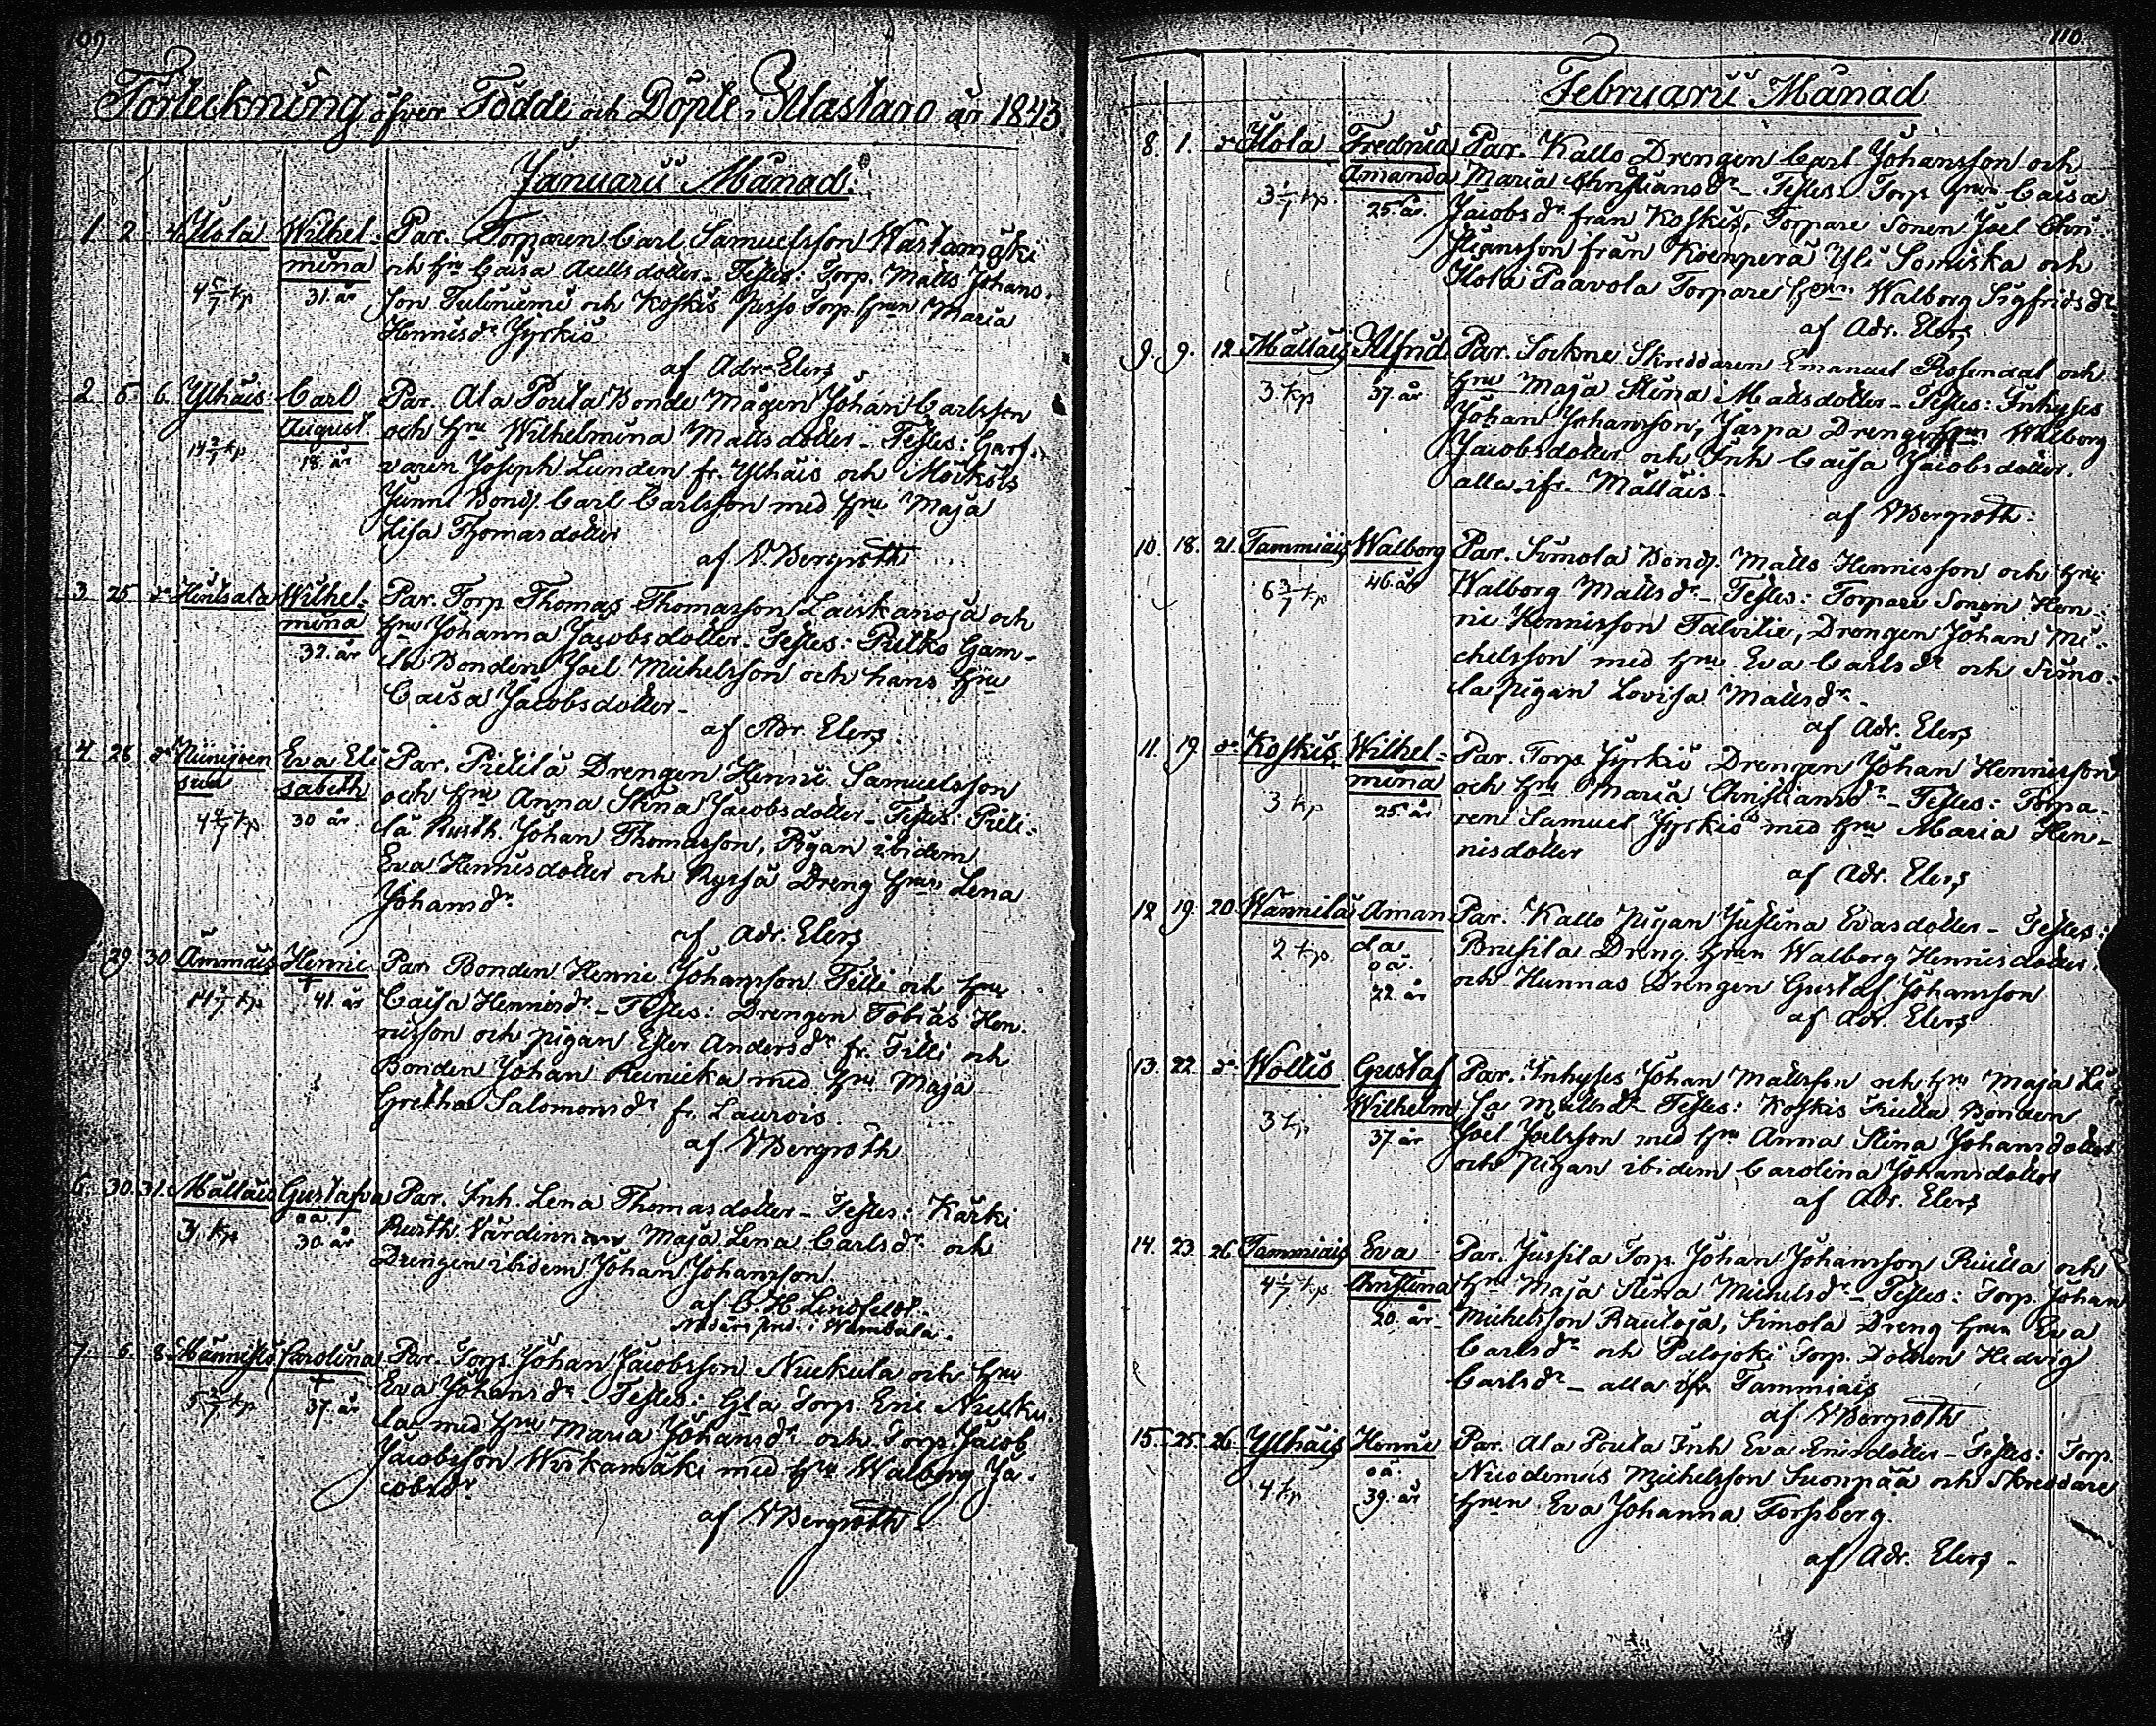 109
Förteckning öfver Födde och Döpte i Alastaro år 1843
Januarii Månad:
1. 2. dº Ilola Wilhel- Par. Torparen Carl Samuelsson Wastamäki
mina och hru Caisa Axelsdotter_ Testes: Torp. Matts Johans-
4 5/7 kp 31. år son Tuliniemi och Koskis Torp. hrun Maria
Hennisdr Jyrkiö
af Adr. Elers
2 5 6. Ylhäis Carl Par. Ala Poula Bonde Mågen Johan Carlsson
August och hru Wilhelmina Mattsdotter_ Testes: Garf-
14 2/7 kp 18. år varen Joseph Lunden fr. Ylhäis och
Bond. Carl Carlsson med hru Maja
Lisa Thomasdotter
af V. Bergroth
3 25 dº Hintsala Wilhel- Par. Torp. Thomas Thomasson Laiskanoja och
mina hru Johanna Jacobsdotter. Testes: Pulko Gam-
32. år la Bonden Joel Michelsson och hans hru
Caisa Jacobsdotter_
af Adr. Elers.
4. 28 dº Niinijoen Eva Eli Par. Pietilä Drengen Henric Samuelsson
suu sabeth och hru Anna Stina Jacobsdotter_ Testes: Pieti-
4 2/7 kp 30 år. lä Rusth. Johan Thomasson, Pigan ibidem
Eva Hennisdotter och Ryssä Dreng hrun Lena
Johansdr
af Adr. Elers
29. 30. Ämmäis Hennic Par. Bonden Hennic Johansson Tilli och hru
14 2/7 kp 41. år Caisa Hennisdr_ Testes: Drengen Tobias Hen-
nisson och pigan Ester Andersdr fr. Tilli och
Bonden Johan med hru Maja
Gretha Salomonsdr fr. Laurois.
af V Bergroth
6. 30. 31. Mällais Gustafva Par. Inh. Lena Thomasdotter_ Testes: Kärki
3 kp oä. Rusth. Värdinnan Maja Lena Carlsdr och
30 år Drengen ibidem Johan Johansson.
af C. H. Lindfelt.
pred. i Wambula.
7. 6 8. Männistö Carolina Par. Torp. Johan Jacobsson Nuckula och hru
5 2/7 kp 37. år Eva Johansdr_ Testes: Gla Torp. Eric Nucku-
la med hru Maria Johansdr och Torp. Jacob
Jacobsson Wirkamäki med hru Walborg Ja-
cobsdr
af V Bergroth_
110
Februarii Månad
8. 1. dº Ilola Fredrica Par. Kallo Drengen Carl Johansson och
Amanda Maria Christiansdr_ Testes: Torp. hrun Caisa
3 1/7 kp. 25. år. Jacobsdr från Koskis, Torpare Sonen Joel Chri-
stiansson från Koenperä Yli Somiska och
Ilola Paavola Torpare hrun Walborg Sigfridsdr
af Adr. Elers.
9. 9. 12 Mällais Alfrid Par. Sockne Skreddaren Emanuel Rosendal och
3 kp 37. år hru Maja Stina Mattsdotter_ Testes: Inhyses
Johan Johansson, Jaspa Drengehrun Walborg
Jacobsdotter och Inh. Caisa Jacobsdotter.
alla ifr. Mällais_
af V Bergroth:
10. 18. 21. Tammiais Walborg Par. Simola Bond. Matts Hennisson och hru
6 3/7 kp 46. år Walborg Mattsdr_ Testes: Torpare Sonen Hen-
nic Hennisson Talvitie, Drengen Johan Mi-
chelsson med hru Eva Carlsdr och Simo-
la pigan Lovisa Mattsdr_
af Adr. Elers
11. 19. dº Koskis Wilhel- Par. Torp. Jyrkiö Drengen Johan Hennisson
mina och hru Maria Christiansdr_ Testes: Torpa-
3 kp 25. år ren Samuel Jyrkiö med hru Maria Hen-
nisdotter
af Adr. Elers
12 19. 20. Wännilä Aman Par. Kallo Pigan Justina Evasdotter_ Testes:
2 kp. da Brusila Dreng. hrun Walborg Hennisdotter
oä. och Hunnas Drengen Gustaf Johansson
22. år af Adr. Elers
13. 22. dº Woltis Gustaf Par. Inhyses Johan Mattsson och hru Maja Li
Wilhelm sa Mattsdr_ Testes: Koskis Bonden
3 kp 37. år Joel Joelsson med hru Anna Stina Johansdotter
och Pigan ibidem Carolina Johansdotter
af Adr. Elers
14. 23 26 Tammiais Eva Par. Jussila Torp. Johan Johansson och
4 2/7 kp Christina hru Maja Stina Michelsdr_ Testes: Torp. Johan
20. år_ Michelsson Rautoja, Simola Dreng hrun Eva
Carlsdr och Palojoki Torp. Dottren Hedvig
Carlsdr_ alla ifr. Tammiais
af V Bergroth
15. 25. 26 Ylhäis Hennic Par. Ala Poula Inh Eva Ericsdotter_ Testes: Torp.
4 kp oä. Nicodemus Michelsson Suonpää och Skreddare
39. år hrun Eva Johanna Forssberg.
af Adr. Elers_